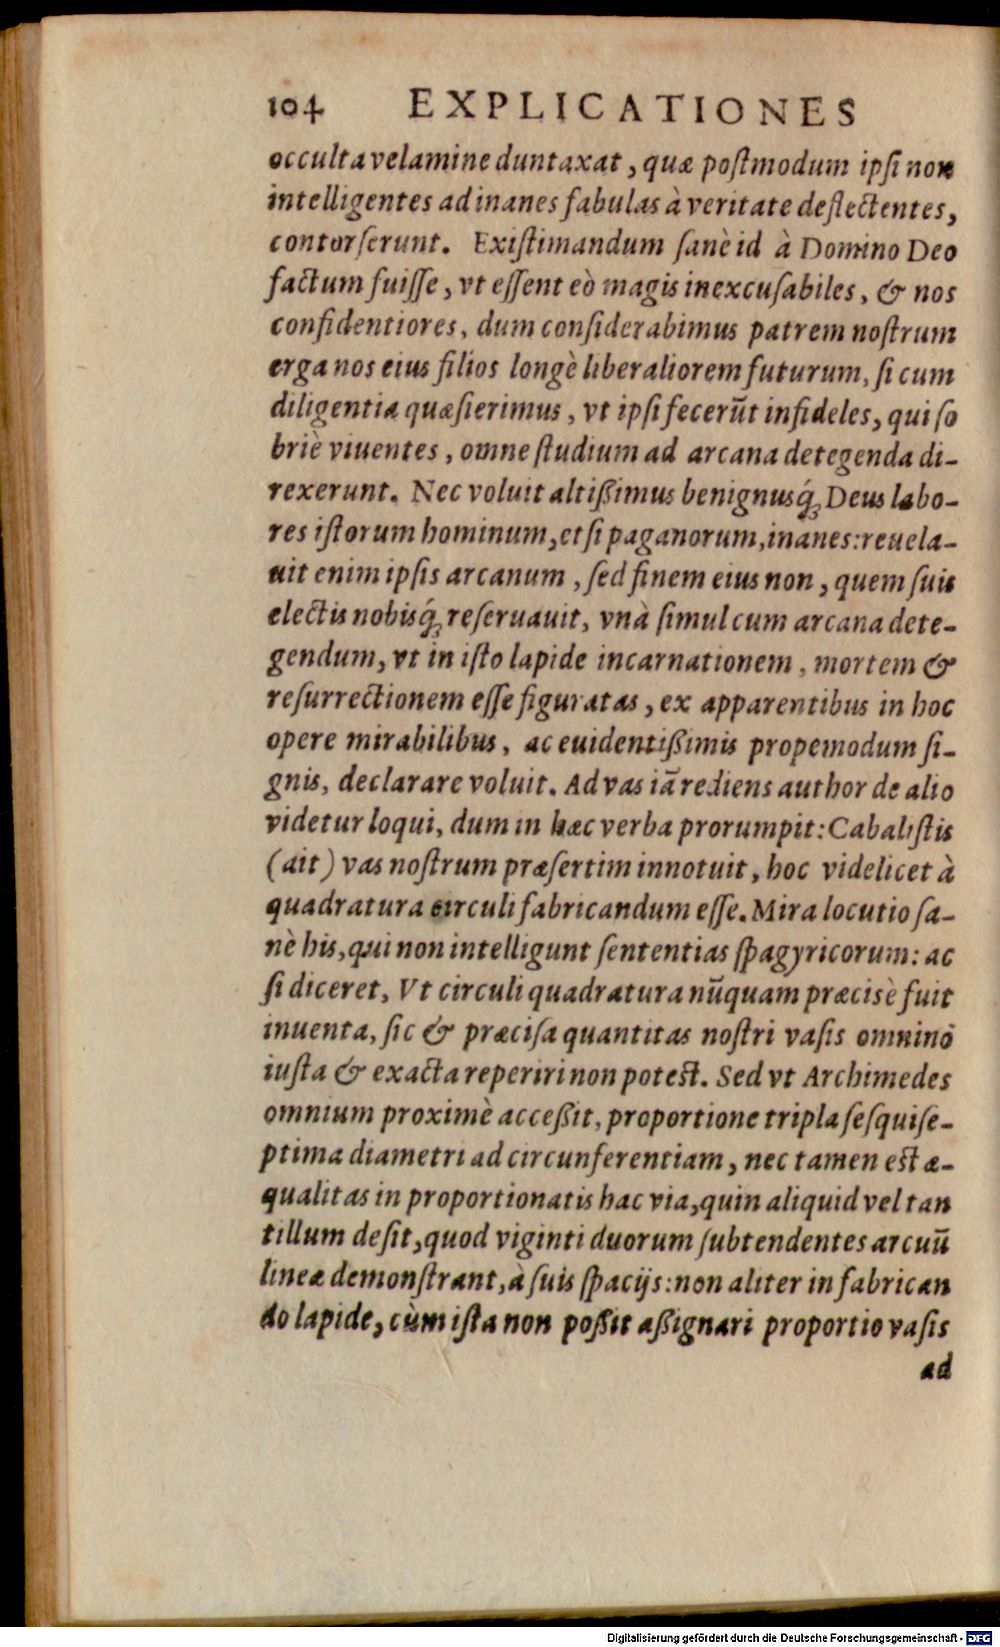 104 EXPLICATIONES
occulta velamine duntaxat, quæ poſtmodum ipſi non
intelligentes ad inanes fabulas à veritate deflectentes,
contorſerunt. Exiſtimandum ſanè id à Domino Deo
factum fuiſſe, vt eſſent eò magis inexcuſabiles, & nos
confidentiores, dum conſiderabimus patrem noſtrum
erga nos eius filios longè liberaliorem futurum, ſi cum
diligentia quæſierimus, vt ipſi fecerūt infideles, qui ſo
briè viuentes, omne ſtudium ad arcana detegenda di-
rexerunt. Nec voluit altißimus benignusq́; Deus labo-
res iſtorum hominum, etſi paganorum, inanes: reuela-
uit enim ipſis arcanum, ſed finem eius non, quem ſuis
electis nobisq́; reſeruauit, vnà ſimul cum arcana dete-
gendum, vt in iſto lapide incarnationem, mortem &
reſurrectionem eſſe figuratas, ex apparentibus in hoc
opere mirabilibus, ac euidentißimis propemodum ſi-
gnis, declarare voluit. Ad vas iā rediens author de alio
videtur loqui, dum in hæc verba prorumpit: Cabaliſtis
(ait) vas noſtrum præſertim innotuit, hoc videlicet à
quadratura circuli fabricandum eſſe. Mira locutio ſa-
nè his, qui non intelligunt ſententias ſpagyricorum: ac
ſi diceret, Vt circuli quadratura nūquam præcisè fuit
inuenta, ſic & præciſa quantitas noſtri vaſis omninò
iuſta & exacta reperiri non poteſt. Sed vt Archimedes
omnium proximè acceßit, proportione tripla ſeſquiſe-
ptima diametri ad circunferentiam, nec tamen eſt æ-
qualitas in proportionatis hac via, quin aliquid vel tan
tillum deſit, quod viginti duorum ſubtendentes arcuū
lineæ demonſtrant, à ſuis ſpacijs: non aliter in fabrican
do lapide, cùm iſta non poßit aßignari proportio vaſis
ad
Digitalisierung gefördert durch die Deutsche Forschungsgemeinschaft - DFG